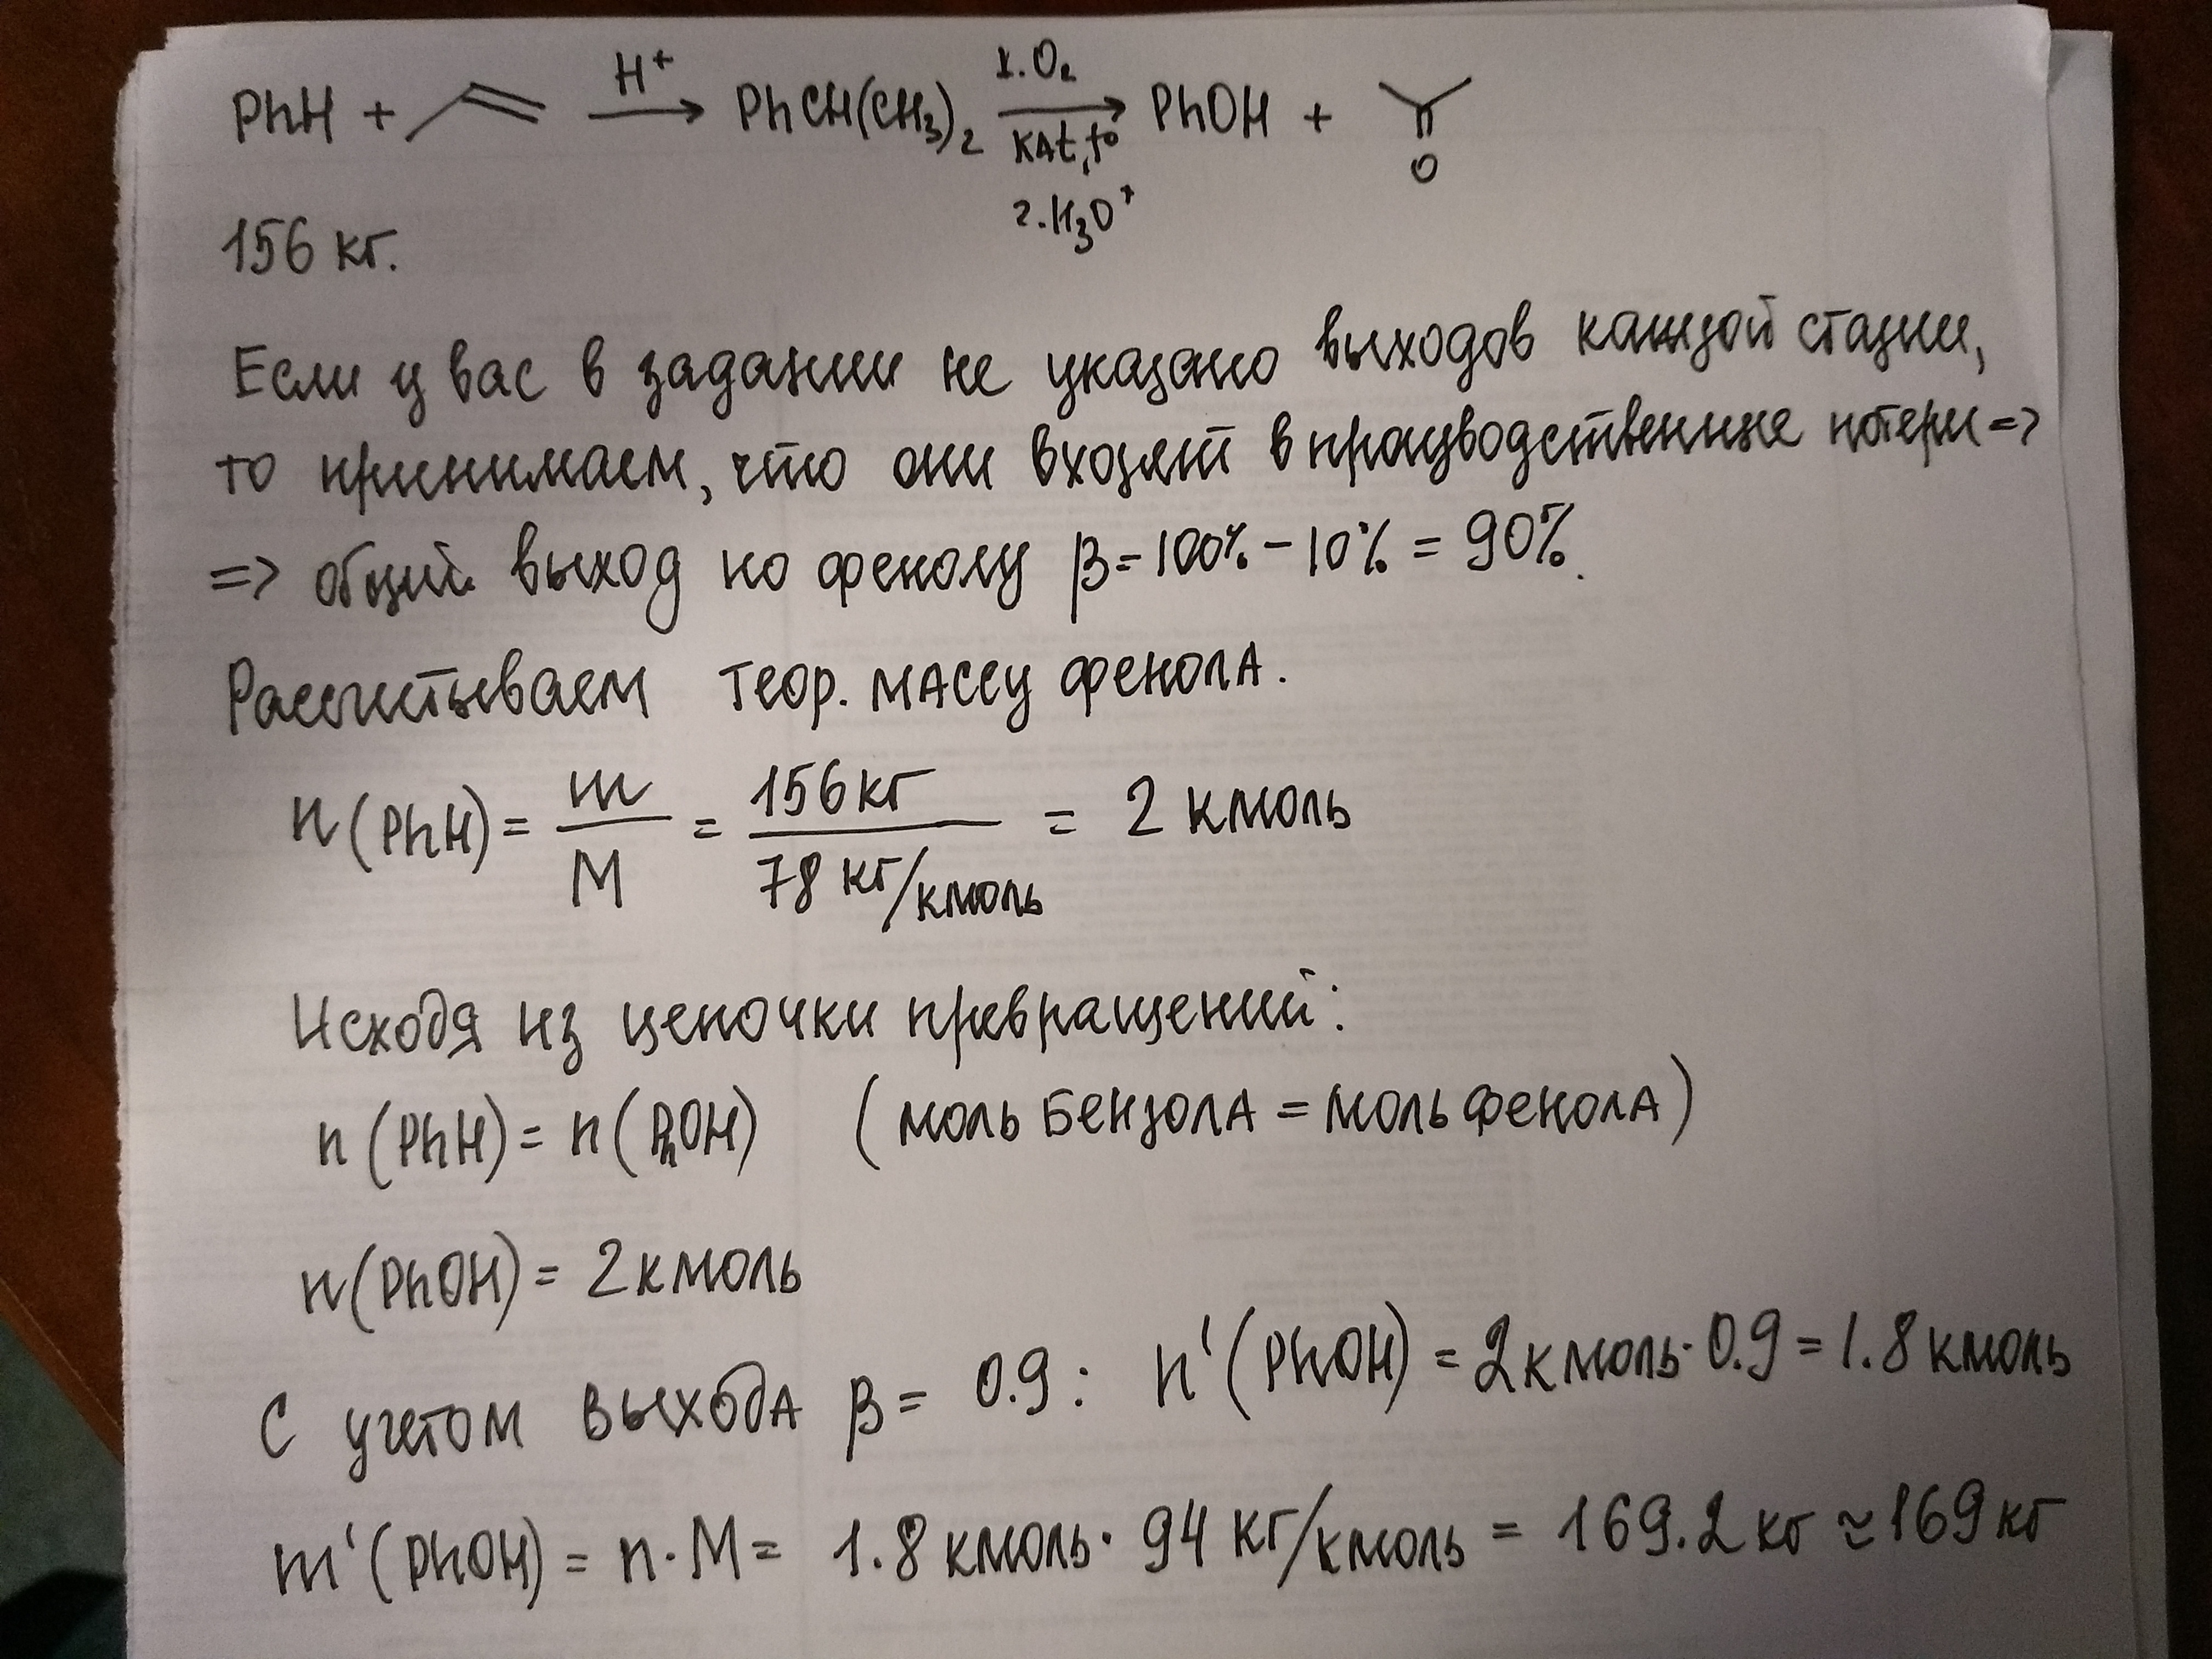 PhH + H⁺ PhCH(CH₃)₂ 1. O₂ PhOH +
кат, t° O
2. H₃O⁺
156 кг.
Если у вас в задании не указано выходов каждой стадии,
то принимаем, что они входят в производственные потери =>
=> общий выход по фенолу β = 100% - 10% = 90%.
Рассчитываем теор. массу фенола.
n(PhH) = m/M = 156 кг / 78 кг/кмоль = 2 кмоль
Исходя из цепочки превращений:
n(PhH) = n(PhOH) (моль бензола = моль фенола)
n(PhOH) = 2 кмоль
С учетом выхода β = 0.9: n'(PhOH) = 2 кмоль · 0.9 = 1.8 кмоль
m'(PhOH) = n · M = 1.8 кмоль · 94 кг/кмоль = 169.2 кг ≈ 169 кг